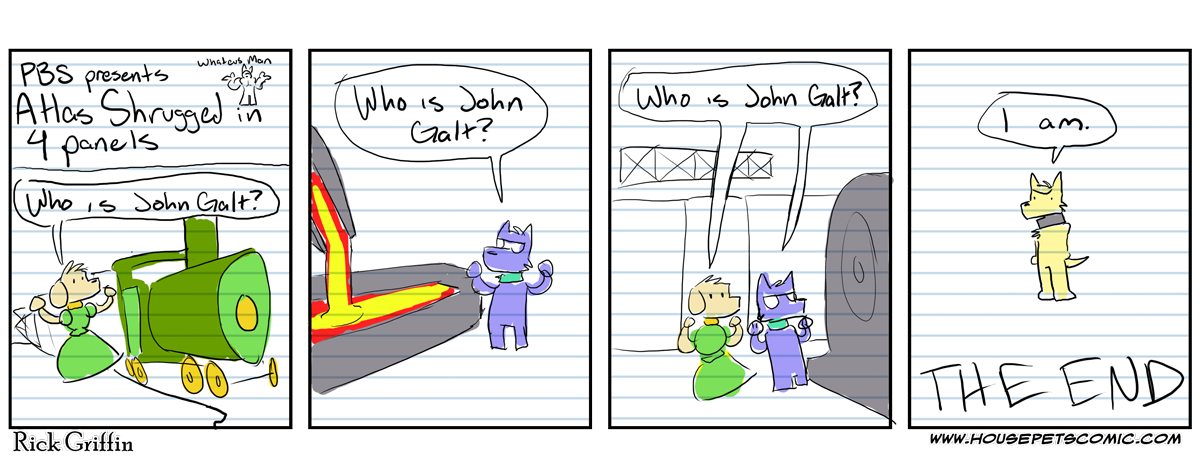 PBS presents
Whatevs Man
Atlas Shrugged in
4 panels
Who is John Galt?
Who is John
Galt?
Who is John Galt?
I am.
THE END
Rick Griffin
WWW.HOUSEPETSCOMIC.COM